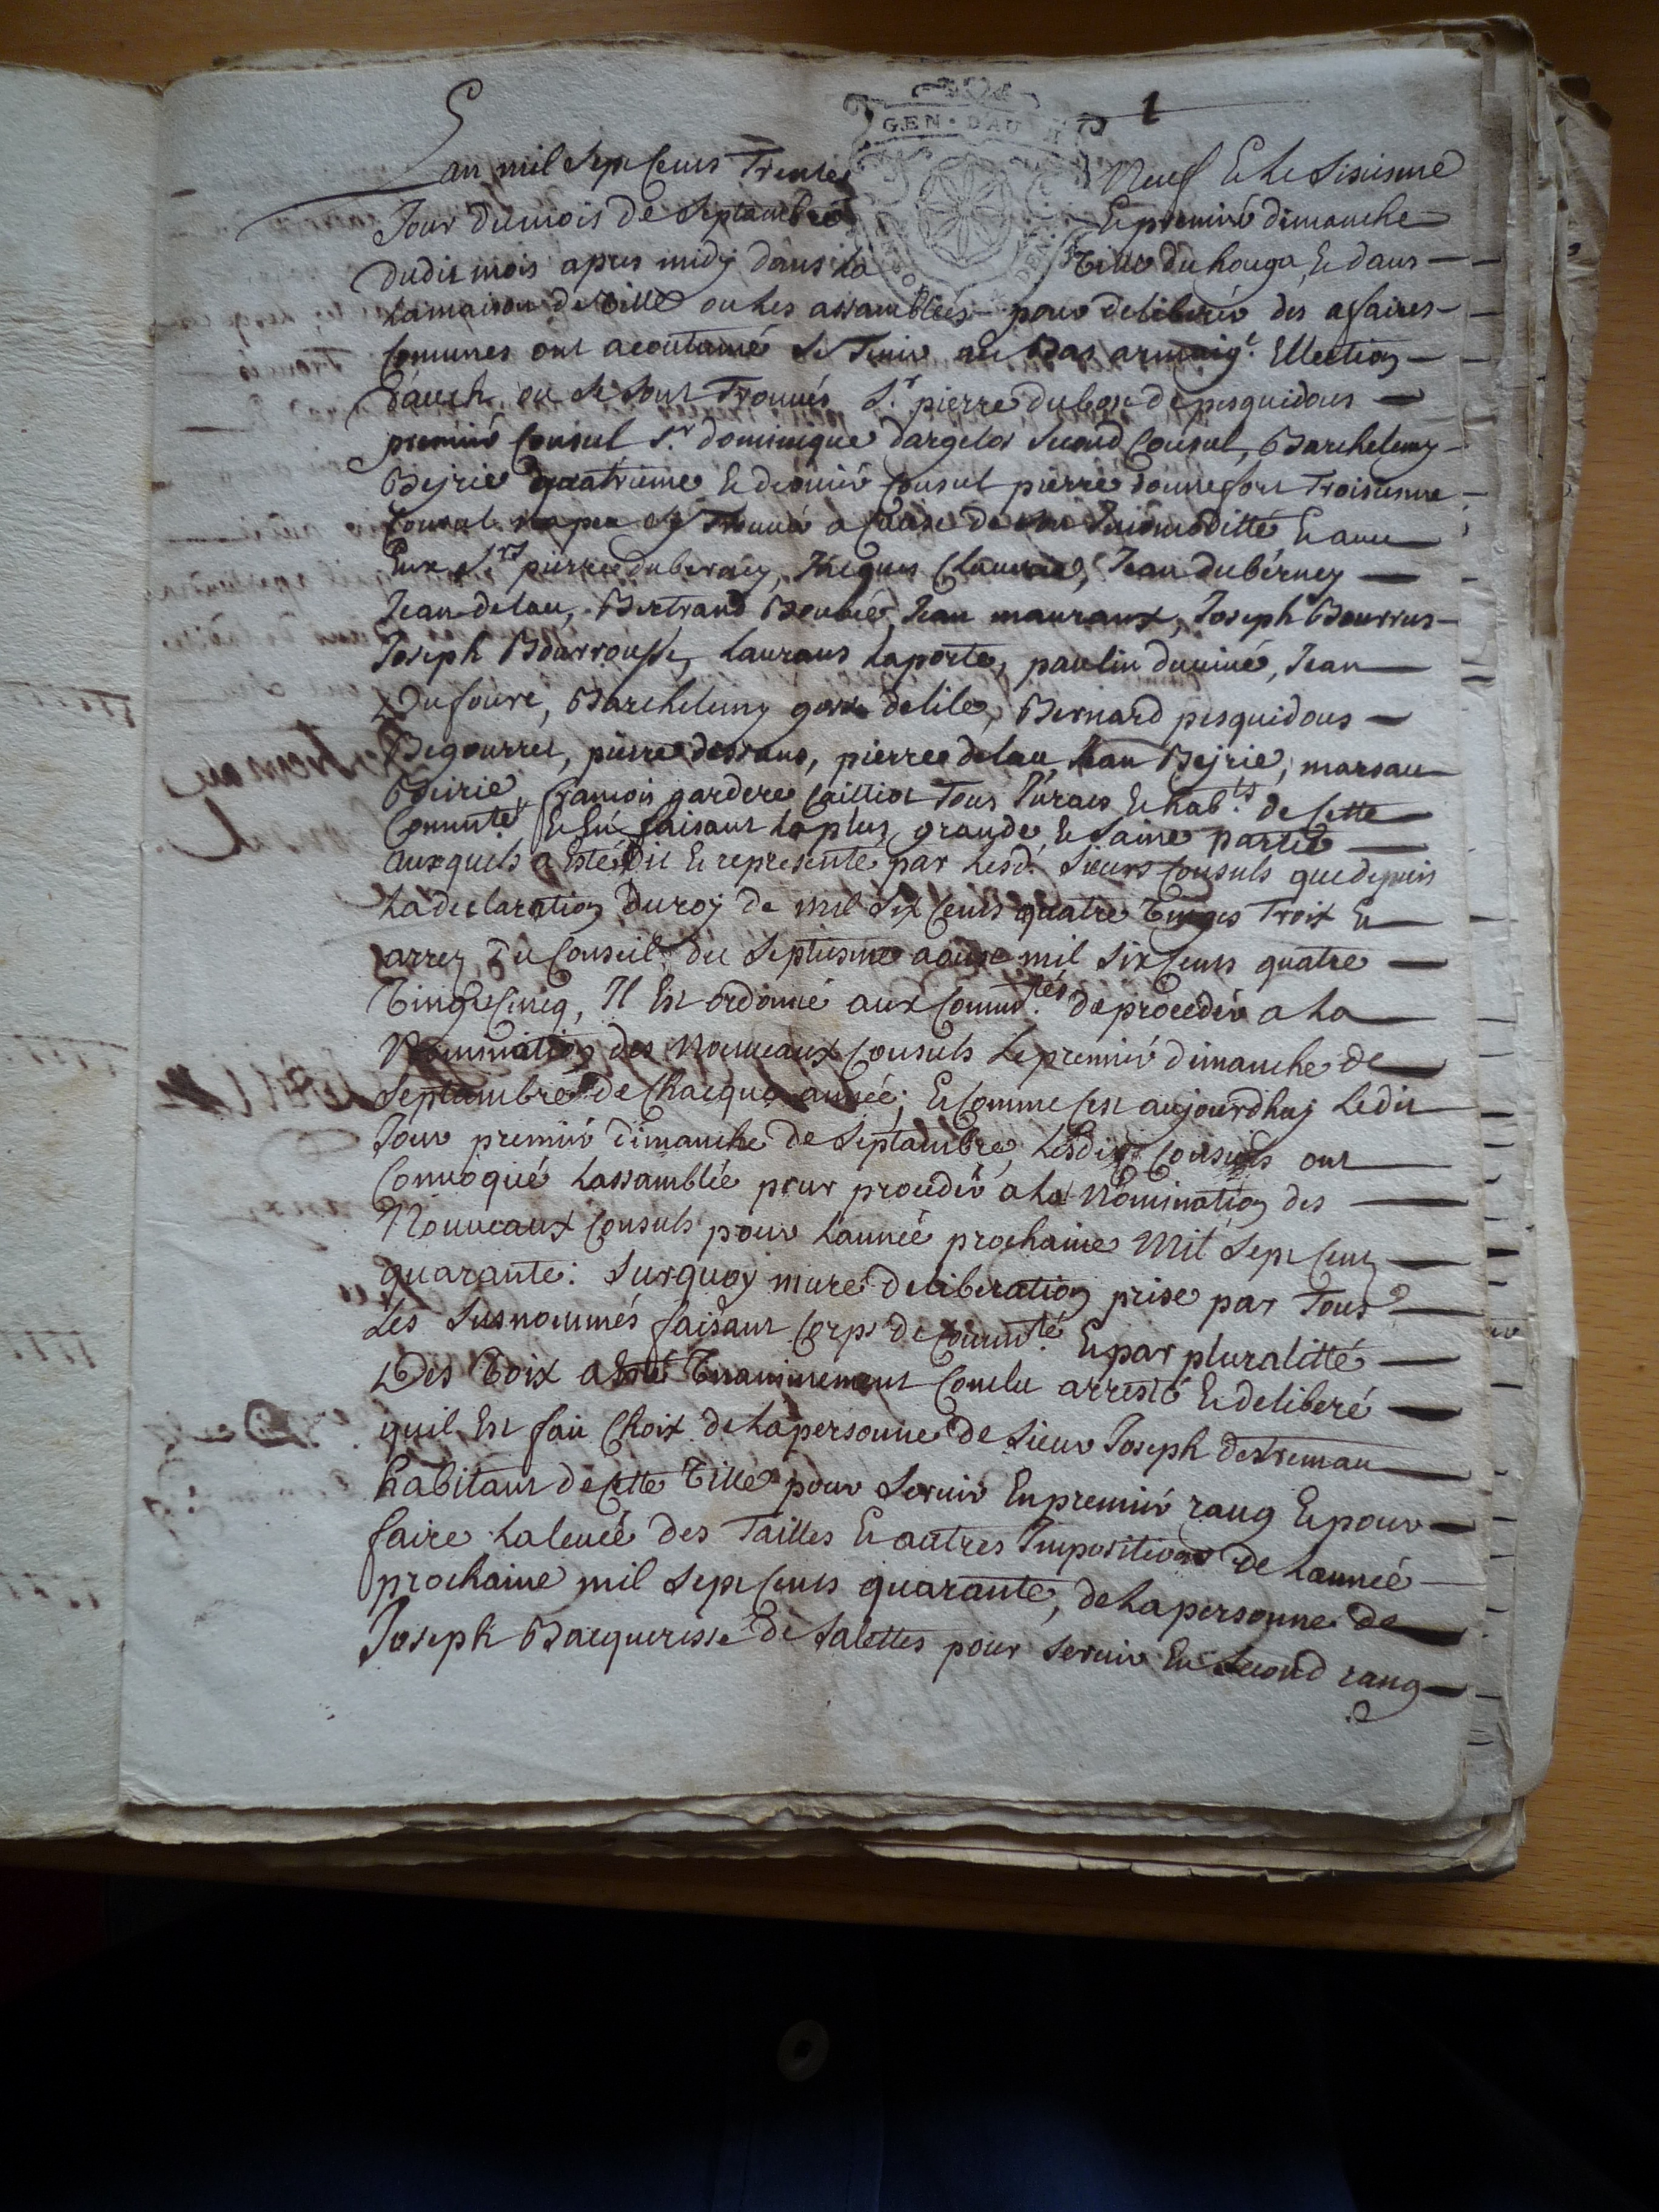 1
GEN · D'AU
Lan mil Sept Cens Trente Neuf Et le Sixiesme
Jour du mois de Septambre Et premiér dimanche
dudit mois apres midy dans la Ville du houga, Et dans
la maison de Ville ou les assamblées pour deliberér des afaires
Comunes ont acoutumé de Tenir au Bas armaig.c Ellection
dauch ou se sont Trouvés S.r pierre dubosc de pesquidous
premiér Consul S.r dominique dargelos second Consul, Barthelemy
Bejrie quatrieme Et derniér Consul pierre donnefort Troisiesme
Consul na peu sy Trouvér a Cause de son Incomoditté Et avec
Eux S.rs pierre duberney, Jacques Jean duberney
Jean delau, Bertrand Boubée, Jean mauraux, Joseph Bourrus
Joseph Bdarrousse, Laurans Laporte, paulin duviné, Jean
Dufourc, Barthelemy delile, Bernard pesquidous
Begourret, pierre dessans, pierre delau, Jean Bejrie, marsau
Beirie, francois gardere Tous Jurats Et hab.ts de Cette
Commté Et En faisant la plus grande Et Saine partie
auxquels a Esté dit Et represente par lesd. Sieurs Consuls que depuis
La declaration du roy de mil Six Cens quatre Vingts Troix Et
arrez du Conseil du Septiesme aoust mil Six Cens quatre
Vingt Cincq, Il Est ordonné aux Commtés. de procedér a la
Nomination des Nouveaux Consuls le premiér dimanche de
Septambre de Chacque année; Et Comme Cest aujourdhuj ledit
Jour premiér dimanche de Septambre, lesdits Consuls ont
Convoqué Lassamblée pour procedér a la Nomination des
Nouveaux Consuls pour Lannée prochaine Mil Sept Cens
quarante: Surquoy mure deliberation prise par Tous
Les Susnommés faisant Corps de Commté. Et par pluralitté
Des Voix a Esté Unanimement Conclu arresté Et deliberé
quil Est fait Choix de la personne de Sieur Joseph destremau
habitant de Cette Ville pour Servir En premiér rang Et pour
faire La levée des Tailles Et autres Impositions de Lannée
prochaine mil Sept Cens quarante, de la personne de
Joseph Bacquerisse de Salettes pour Servir En Second rang